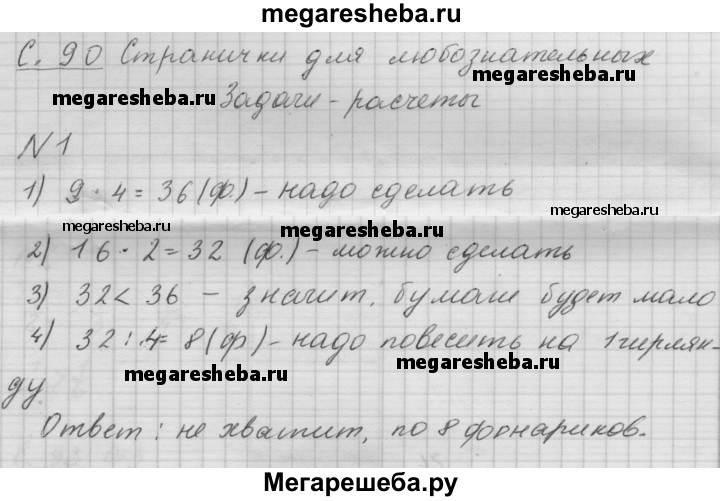 megaresheba.ru
С. 90 Странички для любознательных
megaresheba.ru Задачи - расчеты
N 1
1) 9 · 4 = 36 (ф.) - надо сделать
megaresheba.ru megaresheba.ru megaresheba.ru
2) 16 · 2 = 32 (ф.) - можно сделать
3) 32 < 36 - значит, бумаги будет мало
4) 32 : 4 = 8 (ф) - надо повесить на 1 гирлян-
megaresheba.ru megaresheba.ru
ду
Ответ: не хватит, по 8 фонариков.
Мегарешеба.ру